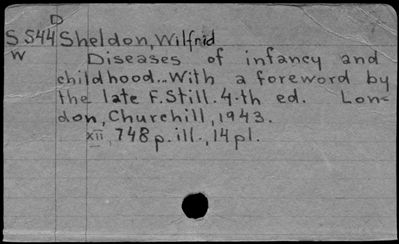 D
S 544 Sheldon, Wilfrid
W Diseases of infancy and
childhood...With a foreword by
the late F. Still. 4-th ed. Lon=
don, Churchill, 1943.
XII, 748 p. ill., 14 pl.